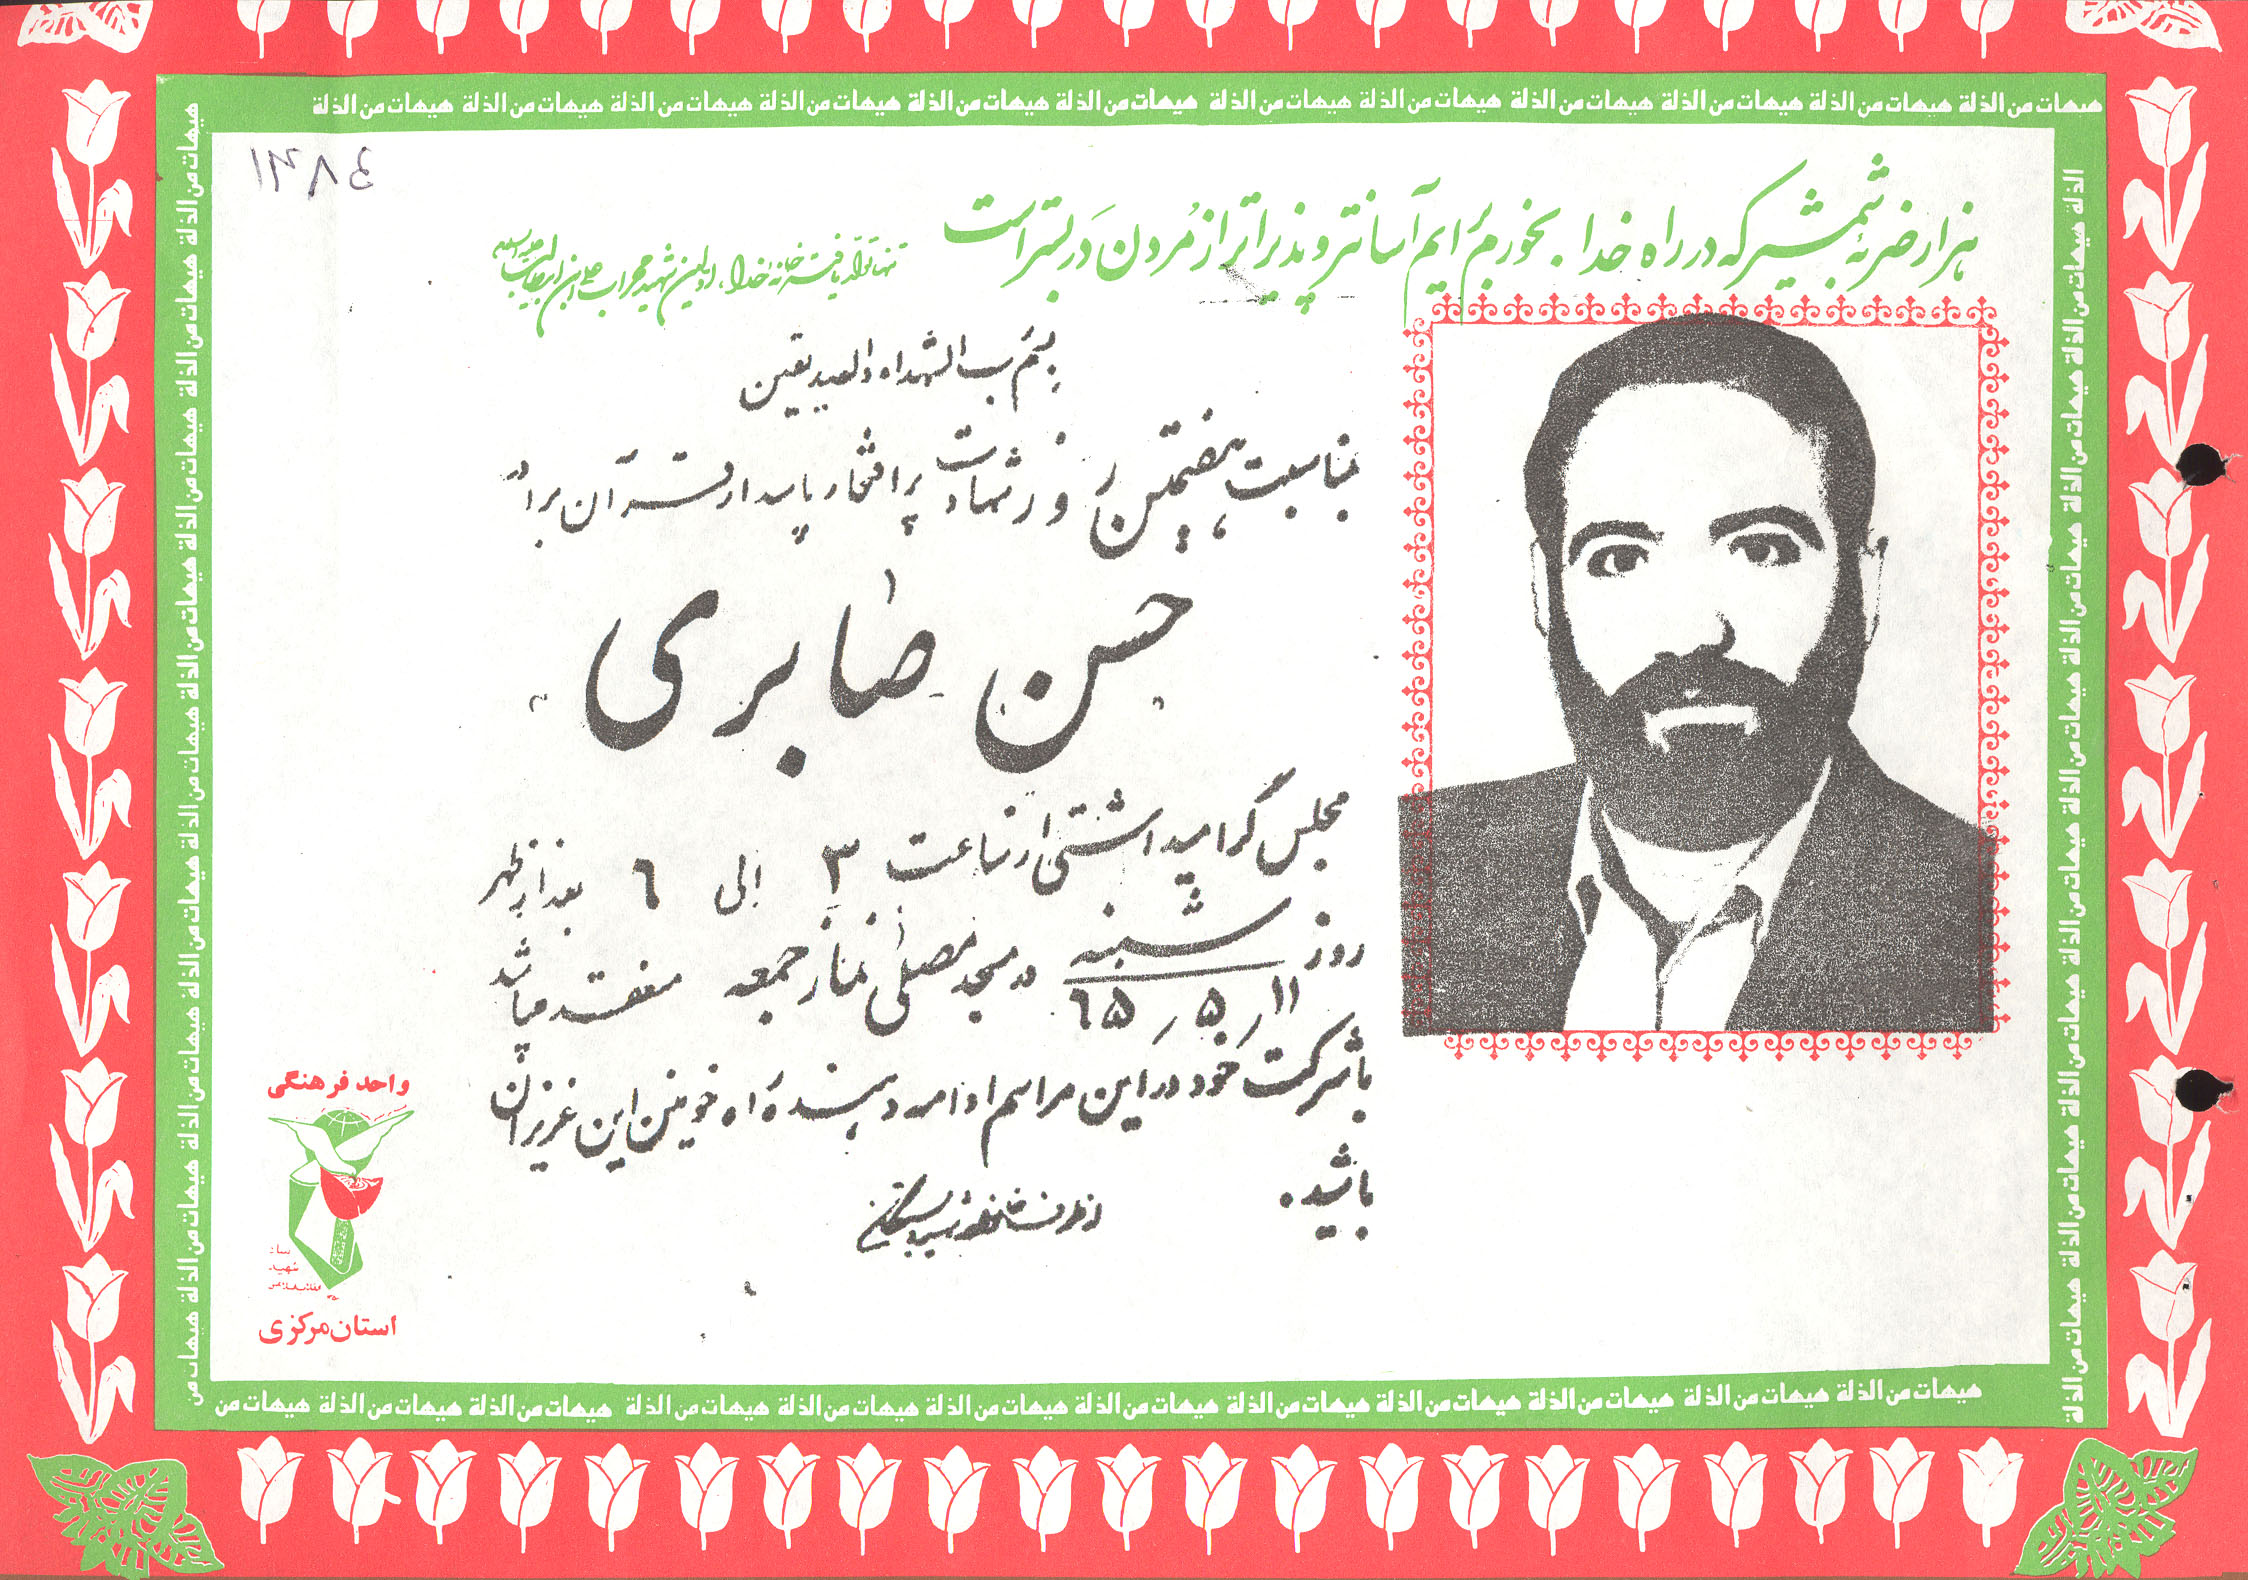 هیهات من الذلة هیهات من الذلة هیهات من الذلة هیهات من الذلة هیهات من الذلة هیهات من الذلة هیهات من الذلة هیهات من الذلة هیهات من الذلة هیهات من الذلة هیهات من الذلة هیهات من الذلة
۱۳۸٤
هزار ضربهٔ شمشیر که در راه خدا بخورم برایم آسانتر و پذیراتر از مردن در بستر است
تنها تولد یافته خانه خدا، اولین شهید محراب علی ابن ابیطالب علیه السلام
بسم رب الشهداء والصدیقین
بمناسبت هفتمین روز شهادت پر افتخار پاسدار رشته آن برادر
"حسن صابری"
مجلس گرامیداشتی از ساعت ۳ الی ٦ بعد از ظهر
روز شنبه در مسجد مصلی نماز جمعه منعقد میباشد
۱۱ ر ۵ ر ٦۵
با شرکت خود در این مراسم ادامه دهنده راه خونین این عزیزان
باشید.
از طرف خانواده شهید و بستگان
واحد فرهنگی
بنیاد
شهید
انقلاب اسلامی
استان مرکزی
هیهات من الذلة هیهات من الذلة هیهات من الذلة هیهات من الذلة هیهات من الذلة هیهات من الذلة هیهات من الذلة هیهات من الذلة هیهات من الذلة هیهات من الذلة هیهات من الذلة هیهات من